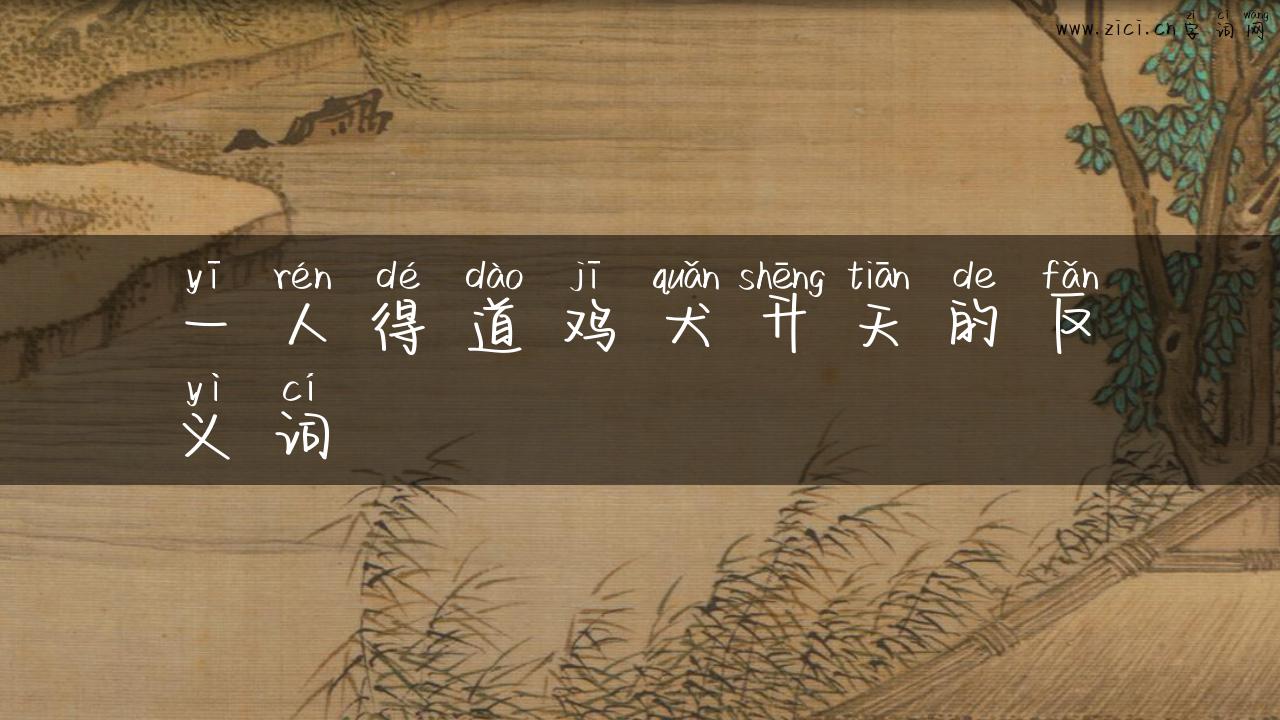 zì cí wǎng
www.zici.cn 字词网
yī rén dé dào jī quǎn shēng tiān de fǎn
一人得道鸡犬升天的反
yì cí
义词